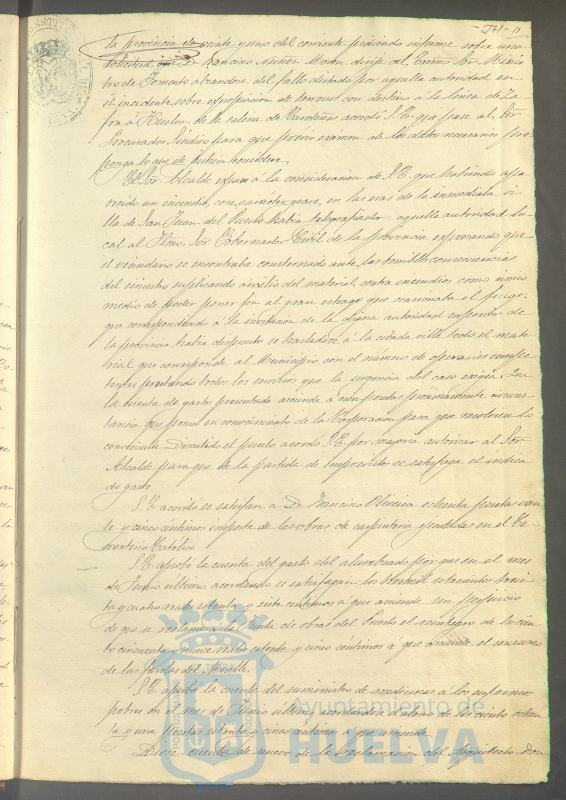 la provincia de veinte y uno del corriente pidiendo informe sobre una
solicitud que D. Francisco Muñoz Morón dirije al Excmo. Sor. Minis
tro de Fomento alzandose del fallo dictado por aquella autoridad en
el incidente sobre espropiacion de terrenos con destino á la linea de Za
fra á Huelva, de la salina de Cardeñas acordó S.E. que pase al Sor.
Procurador Síndico para que previo exámen de los datos necesarios pro
ponga lo que de justicia considere.
El Sor. Alcalde expuso á la consideracion de S.E. que habiendo apa
recido un incendio, con carácter grave, en las eras de la inmediata vi
lla de San Juan del Puerto habia telegrafiado aquella autoridad lo
cal al Ilmo. Sor. Gobernador Civil de la provincia expresando que
el vecindario se encontraba consternado ante las terribles consecuencias
del siniestro suplicando auxilio del material contra incendios como único
medio de poder poner fin al gran estrago que ocasionaba el fuego:
que correspondiendo á la invitacion de la digna autoridad superior de
la provincia habia dispuesto se trasladase á la citada villa todo el mate
rial que corresponde al Municipio con el número de operarios compe
tentes prestando todos los servicios que la urgencia del caso exigia. Que
la cuenta de gastos presentada asciende á cien pesetas proximamente, circuns
tancia que ponia en conocimiento de la Corporacion para que resolviera lo
conveniente. Discutido el punto acordó S.E. por mayoria autorizar al Sor.
Alcalde para que de la partida de Imprevistos se satisfaga el indica
do gasto.
S.E. acordó se satisfagan á D. Francisco Oliveira ochenta pesetas vein
te y cinco céntimos importe de las obras de carpinteria ejecutadas en el Ce
menterio Católico.
S.E. aprobó la cuenta del gasto del alumbrado por gas en el mes
de Junio último acordando se satisfagan los mil setecientos trein
ta y cuatro reales setenta y siete centimos á que asciende sin perjuicio
de que se reclame á la Junta de obras del Puerto el reintegro de los cien
to cincuenta y nueve reales setenta y cinco céntimos á que asciende el consumo
de las farolas del Muelle.
S.E. aprobó la cuenta del suministro de medicinas á los enfermos
pobres en el mes de Junio último acordandose el abono de las ciento ochen
ta y una pesetas setenta y cinco centimos á que asciende.
Diose cuenta de nuevo de la reclamacion del Arquitecto Don
Ayuntamiento de
HUELVA